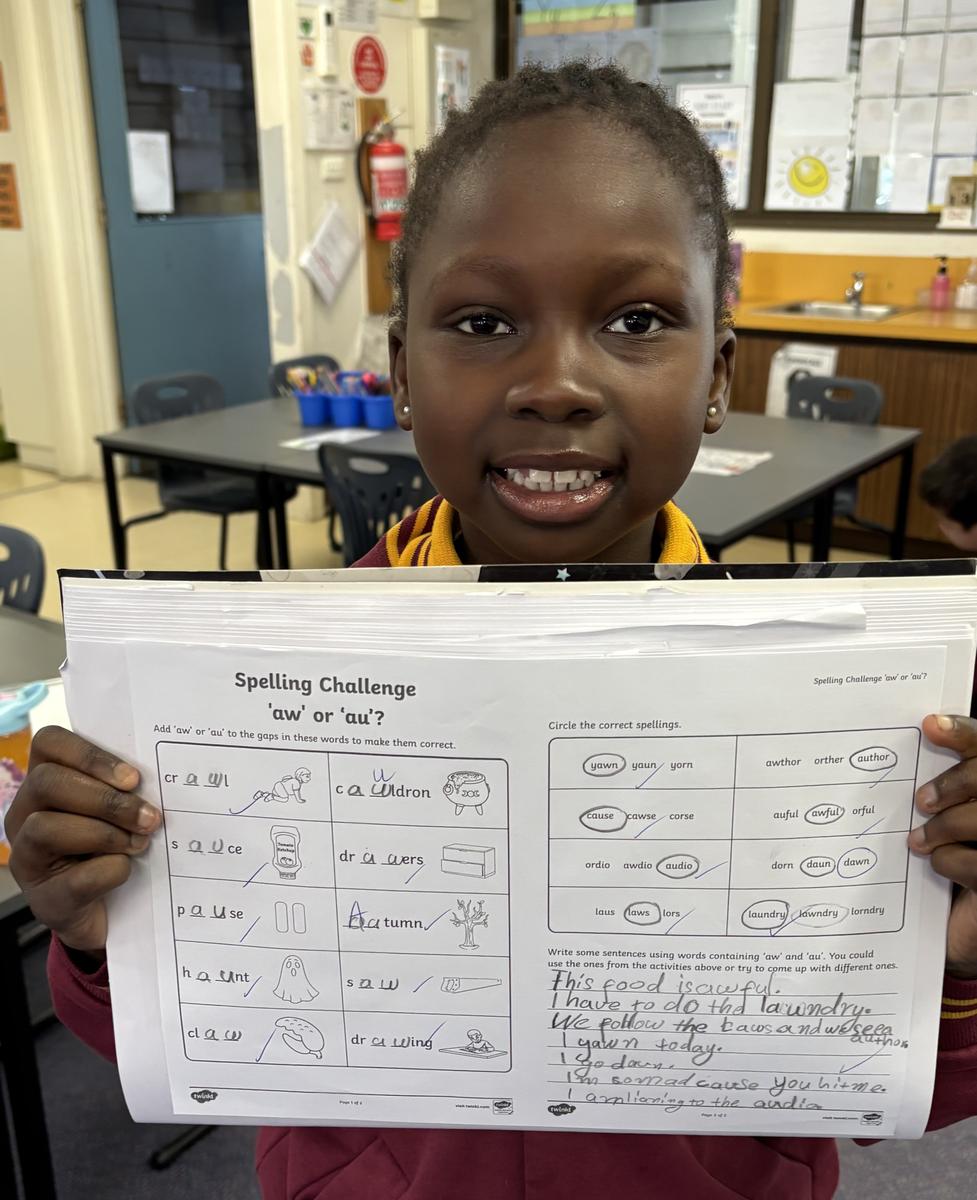 Spelling Challenge
'aw' or 'au'?
Add 'aw' or 'au' to the gaps in these words to make them correct.
cr a w l
c a w ldron
s a u ce
Tomato
Ketchup
dr a w ers
p a u se
Autumn
h a u nt
s a w
cl a w
dr a wing
twinkl
Page 1 of 2
visit twinkl.com
Spelling Challenge 'aw' or 'au'?
Circle the correct spellings.
yawn yaun yorn
awthor orther author
cause cawse corse
auful awful orful
ordio awdio audio
dorn daun dawn
laus laws lors
laundry lawndry lorndry
Write some sentences using words containing 'aw' and 'au'. You could
use the ones from the activities above or try to come up with different ones.
This food is awful.
I have to do the laundry.
We follow the laws and we see a
author
I yawn today.
I go dawn.
I'm so mad cause you hit me.
I am to the audio
twinkl
Page 2 of 2
visit twinkl.com